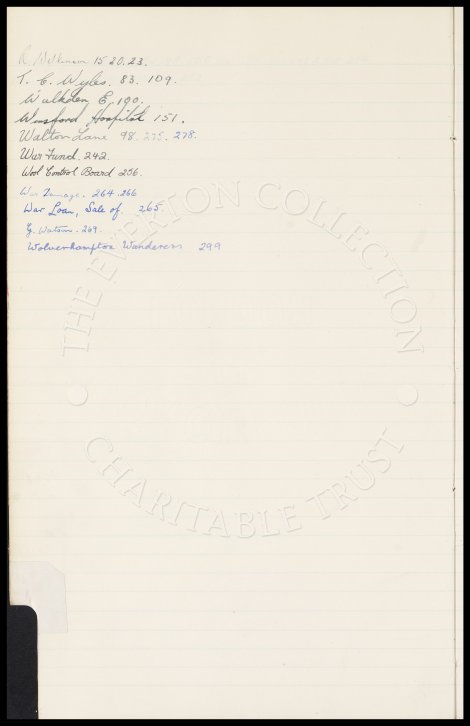 R. Wilkinson 15 20. 23.
T. C. Wyles. 83. 109.
Walkden E. 190.
Winsford Hospital 151.
Walton Lane 98. 275. 278.
War Fund. 242.
Wool Control Board 256.
War Damage. 264. 266
War Loan, Sale of. 265.
G. Watson. 269.
Wolverhampton Wanderers 299
THE EVERTON COLLECTION
CHARITABLE TRUST